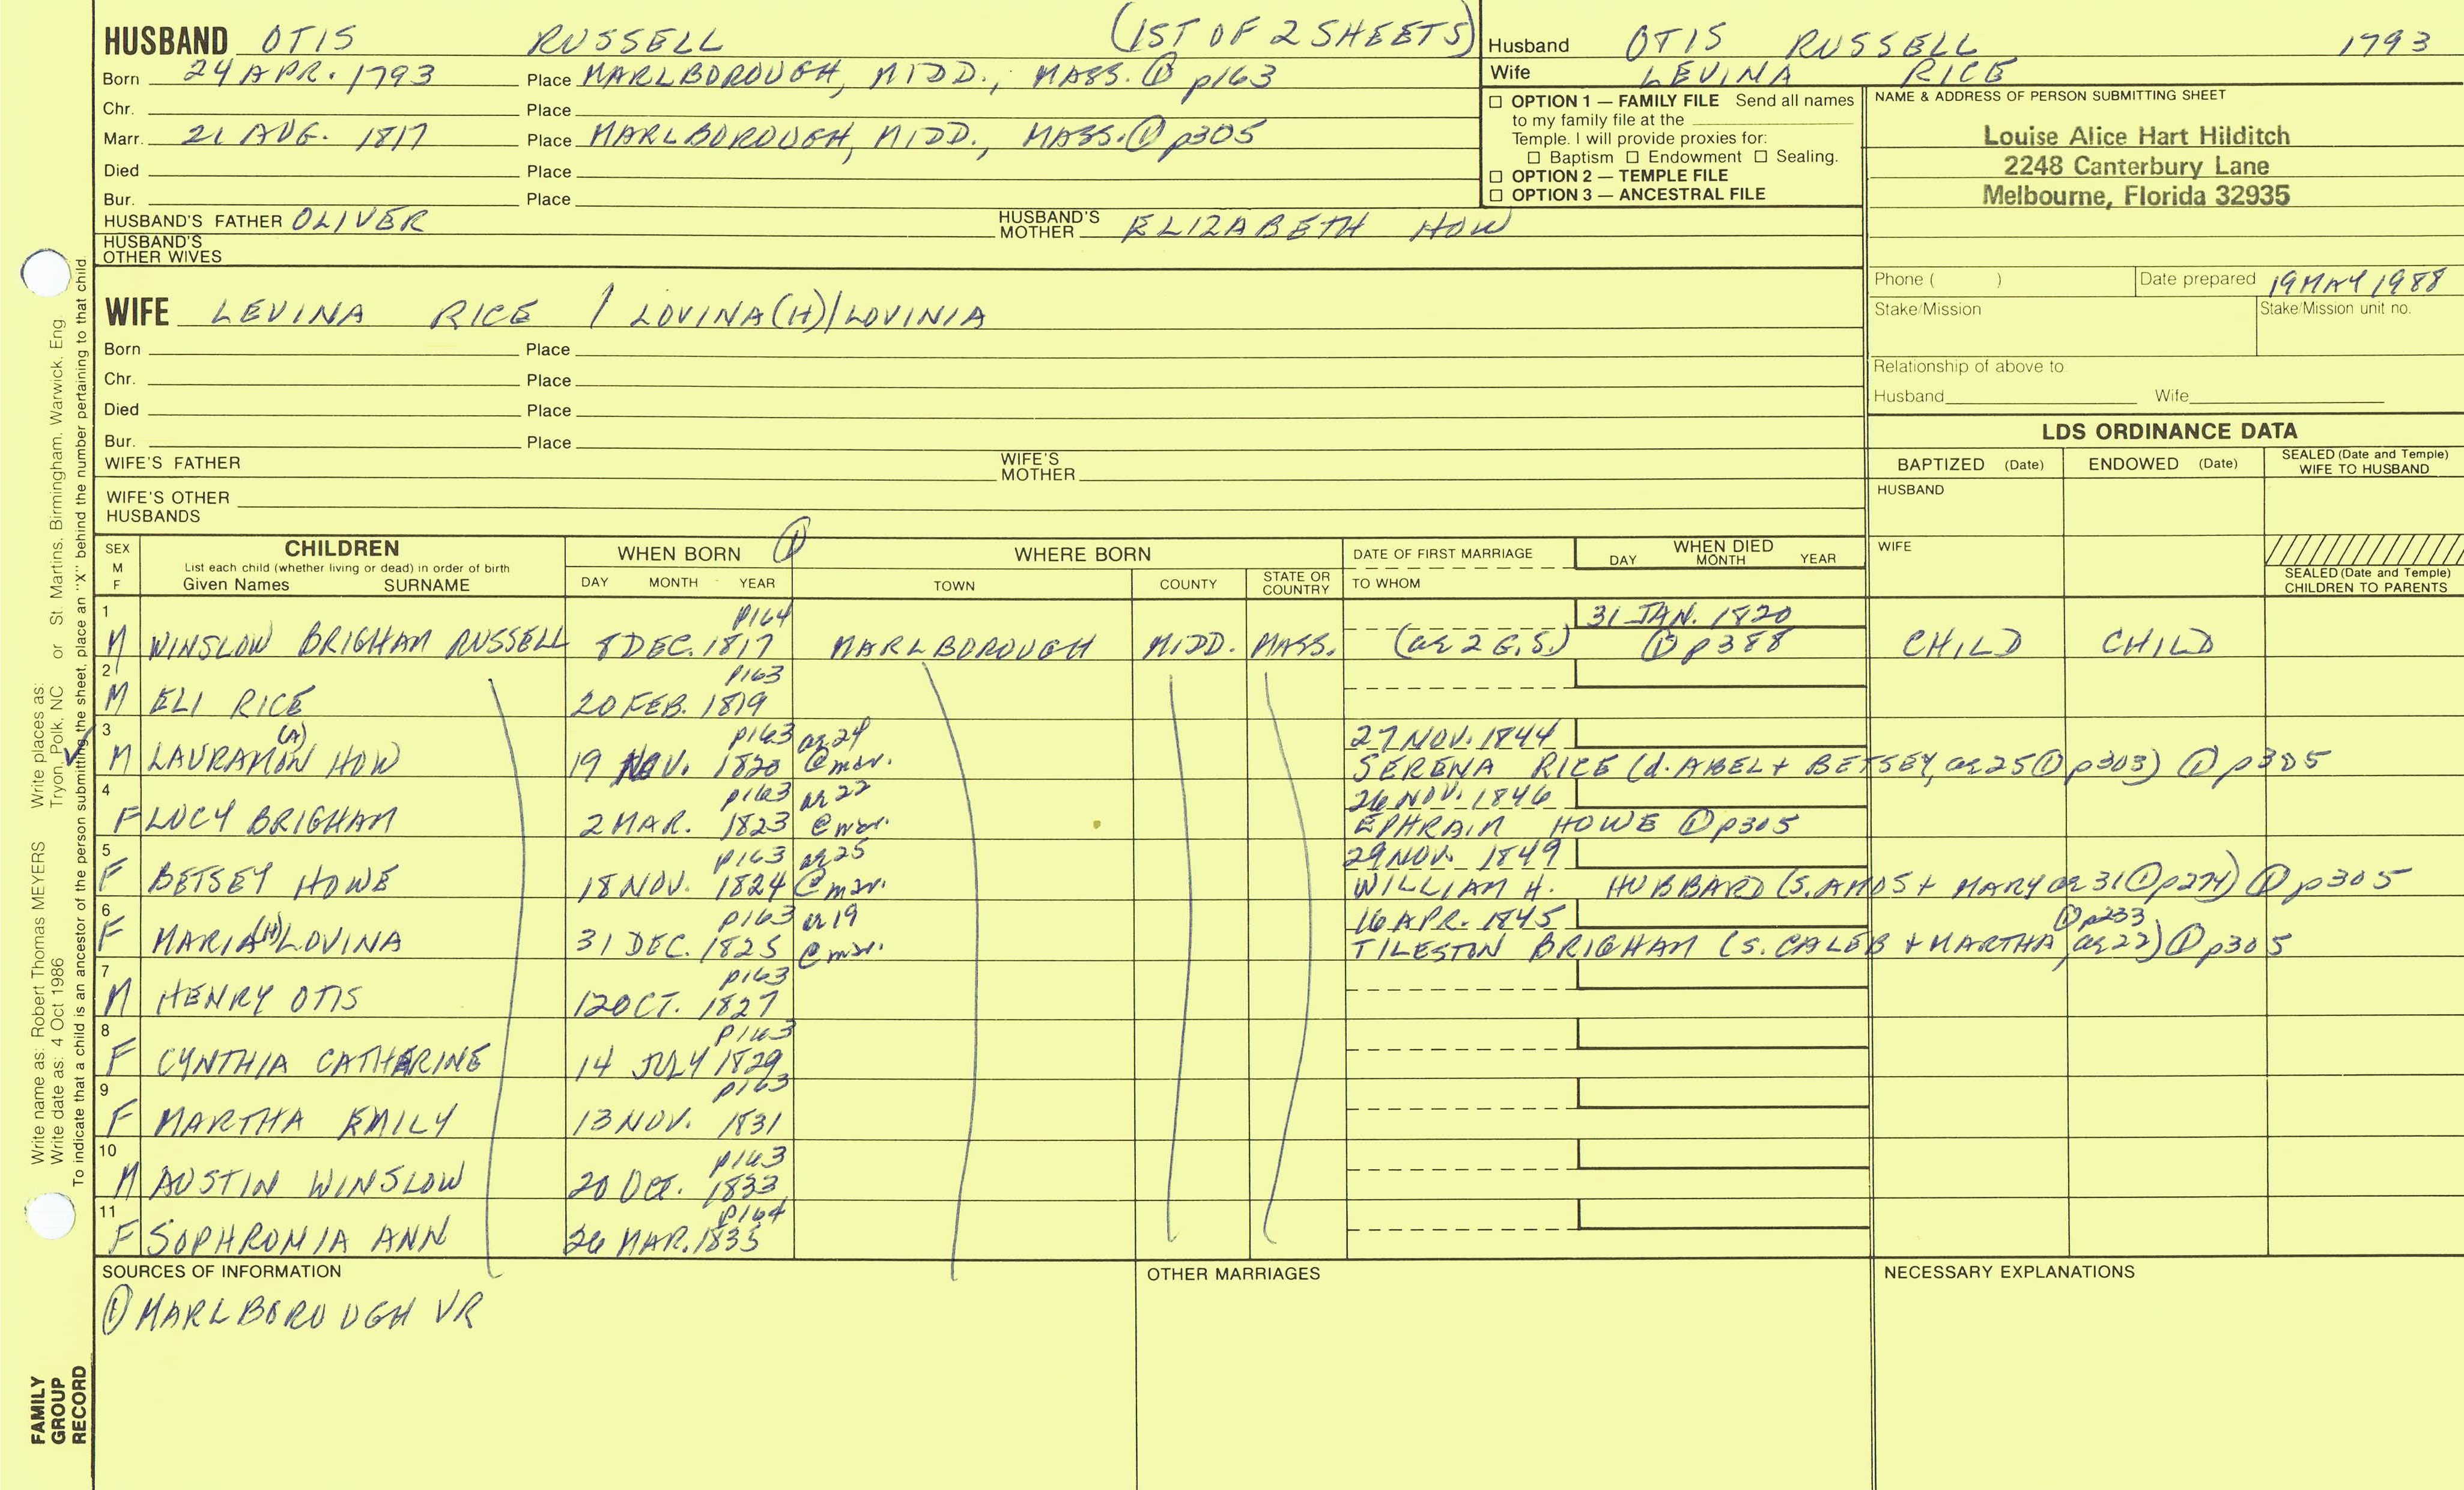 HUSBAND OTIS RUSSELL (1ST OF 2 SHEETS)
Born 24 APR. 1793 Place MARLBOROUGH, MIDD., MASS. ① p163
Chr. Place
Marr. 21 AUG. 1817 Place MARLBOROUGH, MIDD., MASS. ① p305
Died Place
Bur. Place
HUSBAND'S FATHER OLIVER HUSBAND'S MOTHER ELIZABETH HOW
HUSBAND'S OTHER WIVES
Husband OTIS RUSSELL 1793
Wife LEVINA RICE
☐ OPTION 1 — FAMILY FILE Send all names
to my family file at the
Temple. I will provide proxies for:
☐ Baptism ☐ Endowment ☐ Sealing.
☐ OPTION 2 — TEMPLE FILE
☐ OPTION 3 — ANCESTRAL FILE
NAME & ADDRESS OF PERSON SUBMITTING SHEET
Louise Alice Hart Hilditch
2248 Canterbury Lane
Melbourne, Florida 32935
Phone ( ) Date prepared 19 MAY 1988
Stake/Mission Stake/Mission unit no.
Relationship of above to
Husband Wife
WIFE LEVINA RICE / LOVINA(H)/LOVINIA
Born Place
Chr. Place
Died Place
Bur. Place
WIFE'S FATHER WIFE'S MOTHER
WIFE'S OTHER HUSBANDS
LDS ORDINANCE DATA
BAPTIZED (Date) ENDOWED (Date) SEALED (Date and Temple) WIFE TO HUSBAND
HUSBAND
WIFE
SEALED (Date and Temple) CHILDREN TO PARENTS
SEX M F
CHILDREN
List each child (whether living or dead) in order of birth
Given Names SURNAME
WHEN BORN ①
DAY MONTH YEAR
WHERE BORN
TOWN COUNTY STATE OR COUNTRY
DATE OF FIRST MARRIAGE
TO WHOM
WHEN DIED
DAY MONTH YEAR
1 p164 31 JAN. 1820
M WINSLOW BRIGHAM RUSSELL 8 DEC. 1817 MARLBOROUGH MIDD. MASS. (ag 2 G.S.) ① p388 CHILD CHILD
2 p163
M ELI RICE 20 FEB. 1819
3 (A) p163 ag 24 27 NOV. 1844
M LAURAMON HOW 19 NOV. 1820 @ mar. SERENA RICE (d. ABEL + BETSEY, ag 25 ① p303) ① p305
4 p163 ag 22 26 NOV. 1846
F LUCY BRIGHAM 2 MAR. 1823 @ mar. EPHRAIM HOWE ① p305
5 p163 ag 25 29 NOV. 1849
F BETSEY HOWE 18 NOV. 1824 @ mar. WILLIAM H. HUBBARD (S. AMOS + MARY ag 31 ① p274) ① p305
6 p163 ag 19 16 APR. 1845 ① p233
F MARIA(H) LOVINA 31 DEC. 1825 @ mar. TILESTON BRIGHAM (S. CALEB + MARTHA, ag 22) ① p305
7 p163
M HENRY OTIS 12 OCT. 1827
8 p163
F CYNTHIA CATHARINE 14 JULY 1829
9 p163
F MARTHA EMILY 13 NOV. 1831
10 p163
M AUSTIN WINSLOW 20 Oct. 1833
11 p164
F SOPHRONIA ANN 26 MAR. 1835
SOURCES OF INFORMATION
① MARLBOROUGH VR
OTHER MARRIAGES
NECESSARY EXPLANATIONS
Write name as: Robert Thomas MEYERS Write places as: Tryon, Polk, NC or St. Martins, Birmingham, Warwick, Eng.
Write date as: 4 Oct 1986
To indicate that a child is an ancestor of the person submitting the sheet, place an "X" behind the number pertaining to that child
FAMILY
GROUP
RECORD